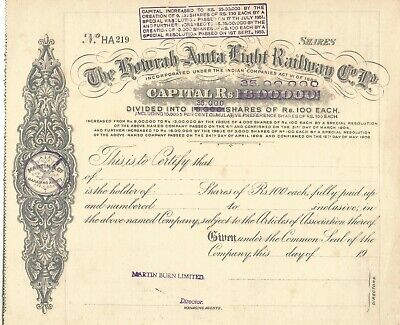 CAPITAL INCREASED TO RS. 35,00,000 BY THE
CREATION OF SHARES OF RS. 100 EACH BY A
SPECIAL RESOLUTION PASSED ON 17TH JULY 1951,
AND FURTHER INCREASED TO BY THE
CREATION OF SHARES OF RS. 100 EACH BY A
SPECIAL RESOLUTION PASSED ON 1ST SEPT. 1953.
No. HA 219
SHARES
The Howrah-Amta Light Railway Co. Ld.
INCORPORATED UNDER THE INDIAN COMPANIES ACT VI OF
CAPITAL Rs.
DIVIDED INTO SHARES OF Rs. 100 EACH.
INCLUDING 10,000 5 PER CENT CUMULATIVE PREFERENCE SHARES OF RS. 100 EACH
INCREASED FROM Rs 9,00,000 TO Rs 13,00,000 BY THE ISSUE OF 4,000 SHARES OF Rs 100 EACH BY A SPECIAL RESOLUTION
OF THE ABOVE NAMED COMPANY PASSED ON THE AND CONFIRMED ON THE 21ST DAY OF MARCH 1904,
AND FURTHER INCREASED TO Rs 16,00,000 BY THE ISSUE OF 3,000 SHARES OF Rs 100 EACH BY A SPECIAL RESOLUTION
OF THE ABOVE NAMED COMPANY PASSED ON THE DAY OF APRIL AND CONFIRMED ON THE DAY OF MAY
This is to Certify that
of
is the holder of Shares of Rs 100 each, fully paid up
and numbered to inclusive, in
the above named Company, subject to the Articles of Association thereof.
Given under the Common Seal of the
Company, this day of 19
MARTIN BURN LIMITED,
DIRECTORS
Director.
MANAGING AGENTS.